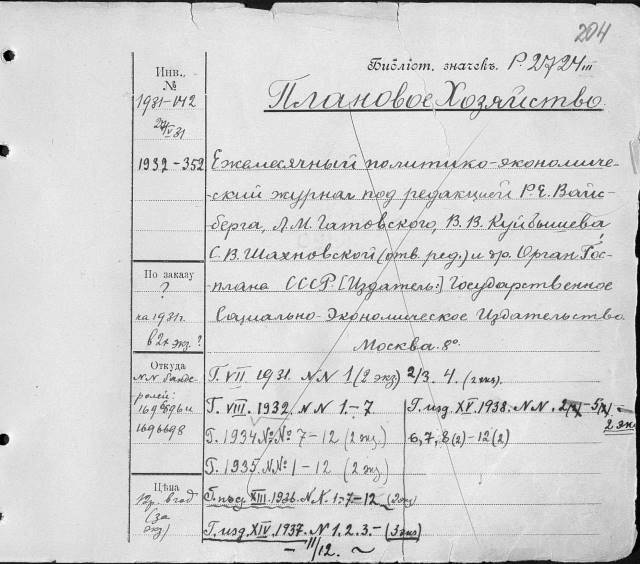 204
Библіот. значекъ. Р. 2724 III
Плановое Хозяйство
Инв.
№
1931-142
IV 31
1932-352
Ежемесячный политико-экономиче-
-ский журнал под редакцией Р. Е. Вайс-
берга, Л. М. Гатовского, В. В. Куйбышева
С. В. Шахновской (отв. ред.) и др. Орган Гос-
плана СССР. [Издатель:] Государственное
Социально-Экономическое Издательство
Москва. 8°.
По заказу
?
на 1931 г.
в 2х экз. ?
Откуда
NN банде-
ролей:
1696698
Г. VII 1931. NN 1 (2 экз) 2/3. 4. (2 экз).
Г. VIII. 1932. NN 1.-7
Г. 1934 №№ 7-12 (2 экз.)
Г. 1935 №№ 1-12 (2 экз)
Г. изд. XIII. 1936. NN. 1-7-12 (2 экз)
Г. изд. XIV. 1937. N 1. 2. 3. - (3 экз)
- 11/12. ~
Г. изд. XV. 1938. NN.
2 экз
6, 7, 8 (2) - 12 (2)
Цѣна
12 р. в год
(за
экз)